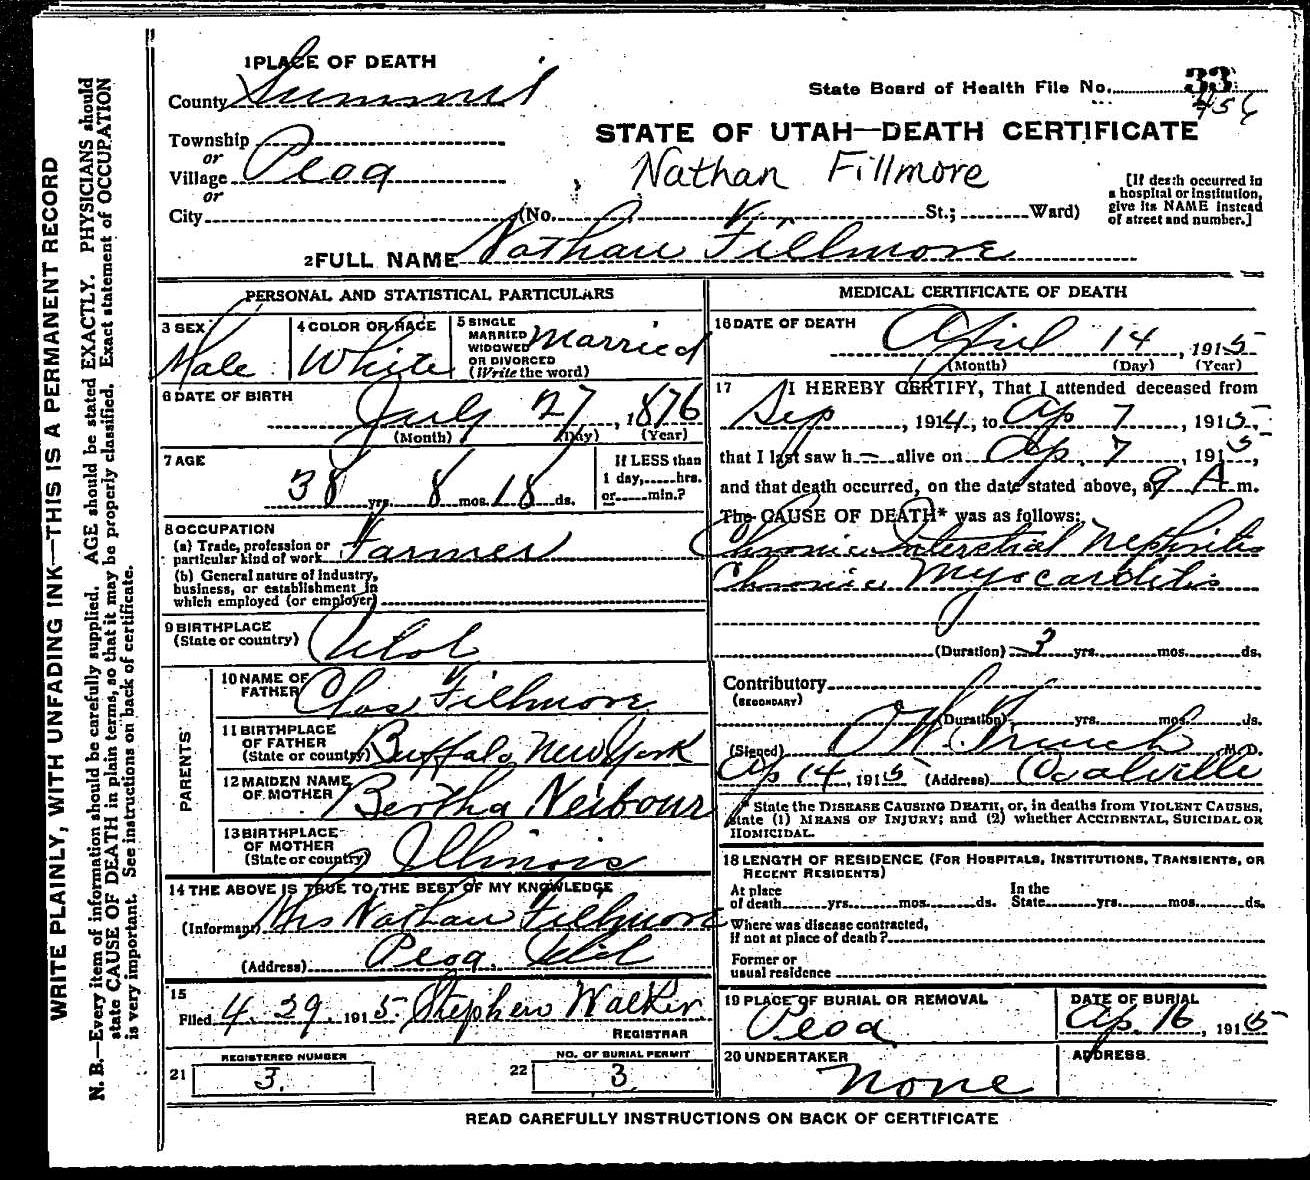 1 PLACE OF DEATH
County Summit
State Board of Health File No. 33
456
Township
or
Village Peoa
or
City (No. St.; Ward)
STATE OF UTAH—DEATH CERTIFICATE
Nathan Fillmore
[If death occurred in
a hospital or institution,
give its NAME instead
of street and number.]
2 FULL NAME Nathan Fillmore
PERSONAL AND STATISTICAL PARTICULARS
3 SEX Male
4 COLOR OR RACE White
5 SINGLE
MARRIED
WIDOWED
OR DIVORCED
(Write the word)
Married
6 DATE OF BIRTH
July 27, 1876
(Month) (Day) (Year)
7 AGE
38 yrs. 8 mos. 18 ds.
If LESS than
1 day,......hrs.
or......min.?
8 OCCUPATION
(a) Trade, profession or
particular kind of work Farmer
(b) General nature of industry,
business, or establishment in
which employed (or employer)
9 BIRTHPLACE
(State or country) Utah
PARENTS
10 NAME OF
FATHER Chas Fillmore
11 BIRTHPLACE
OF FATHER
(State or country) Buffalo New York
12 MAIDEN NAME
OF MOTHER Bertha Neibour
13 BIRTHPLACE
OF MOTHER
(State or country) Illinois
14 THE ABOVE IS TRUE TO THE BEST OF MY KNOWLEDGE
(Informant) Mrs Nathan Fillmore
(Address) Peoa Utah
15
Filed 4. 29. 1915. Stephen Walker
REGISTRAR
REGISTERED NUMBER
21 3.
NO. OF BURIAL PERMIT
22 3
MEDICAL CERTIFICATE OF DEATH
16 DATE OF DEATH
April 14, 1915
(Month) (Day) (Year)
17 I HEREBY CERTIFY, That I attended deceased from
Sep, 1914, to Ap 7, 1915,
that I last saw h — alive on Ap. 7, 1915,
and that death occurred, on the date stated above, at 9 A m.
The CAUSE OF DEATH* was as follows:
Chronic Interstial Nephritis
Chronic Myocarditis
(Duration) 3 yrs. mos. ds.
Contributory
(SECONDARY)
(Duration) yrs. mos. ds.
(Signed) M. D.
Ap 14, 1915 (Address) Coalville
* State the DISEASE CAUSING DEATH, or, in deaths from VIOLENT CAUSES,
state (1) MEANS OF INJURY; and (2) whether ACCIDENTAL, SUICIDAL OR
HOMICIDAL.
18 LENGTH OF RESIDENCE (FOR HOSPITALS, INSTITUTIONS, TRANSIENTS, OR
RECENT RESIDENTS)
At place In the
of death yrs. mos. ds. State yrs. mos. ds.
Where was disease contracted,
if not at place of death?
Former or
usual residence
19 PLACE OF BURIAL OR REMOVAL
Peoa
DATE OF BURIAL
Ap. 16, 1915
20 UNDERTAKER
none
ADDRESS.
READ CAREFULLY INSTRUCTIONS ON BACK OF CERTIFICATE
WRITE PLAINLY, WITH UNFADING INK—THIS IS A PERMANENT RECORD
N. B.—Every item of information should be carefully supplied. AGE should be stated EXACTLY. PHYSICIANS should
state CAUSE OF DEATH in plain terms, so that it may be properly classified. Exact statement of OCCUPATION
is very important. See instructions on back of certificate.